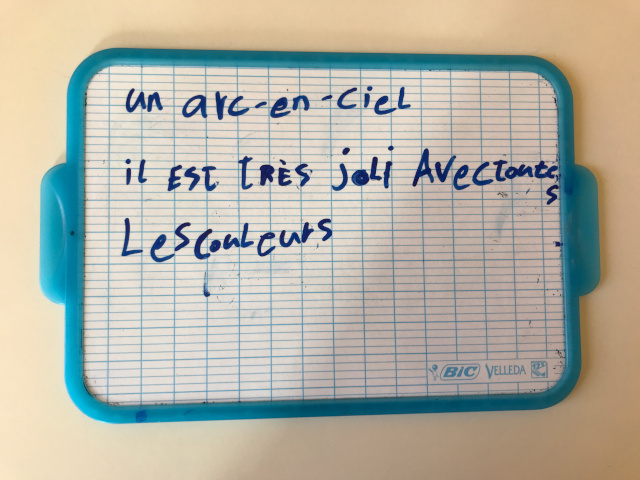 un arc-en-ciel
il EST TRÈS joLi AvecToutes
LesCouLeurs
BIC VELLEDA